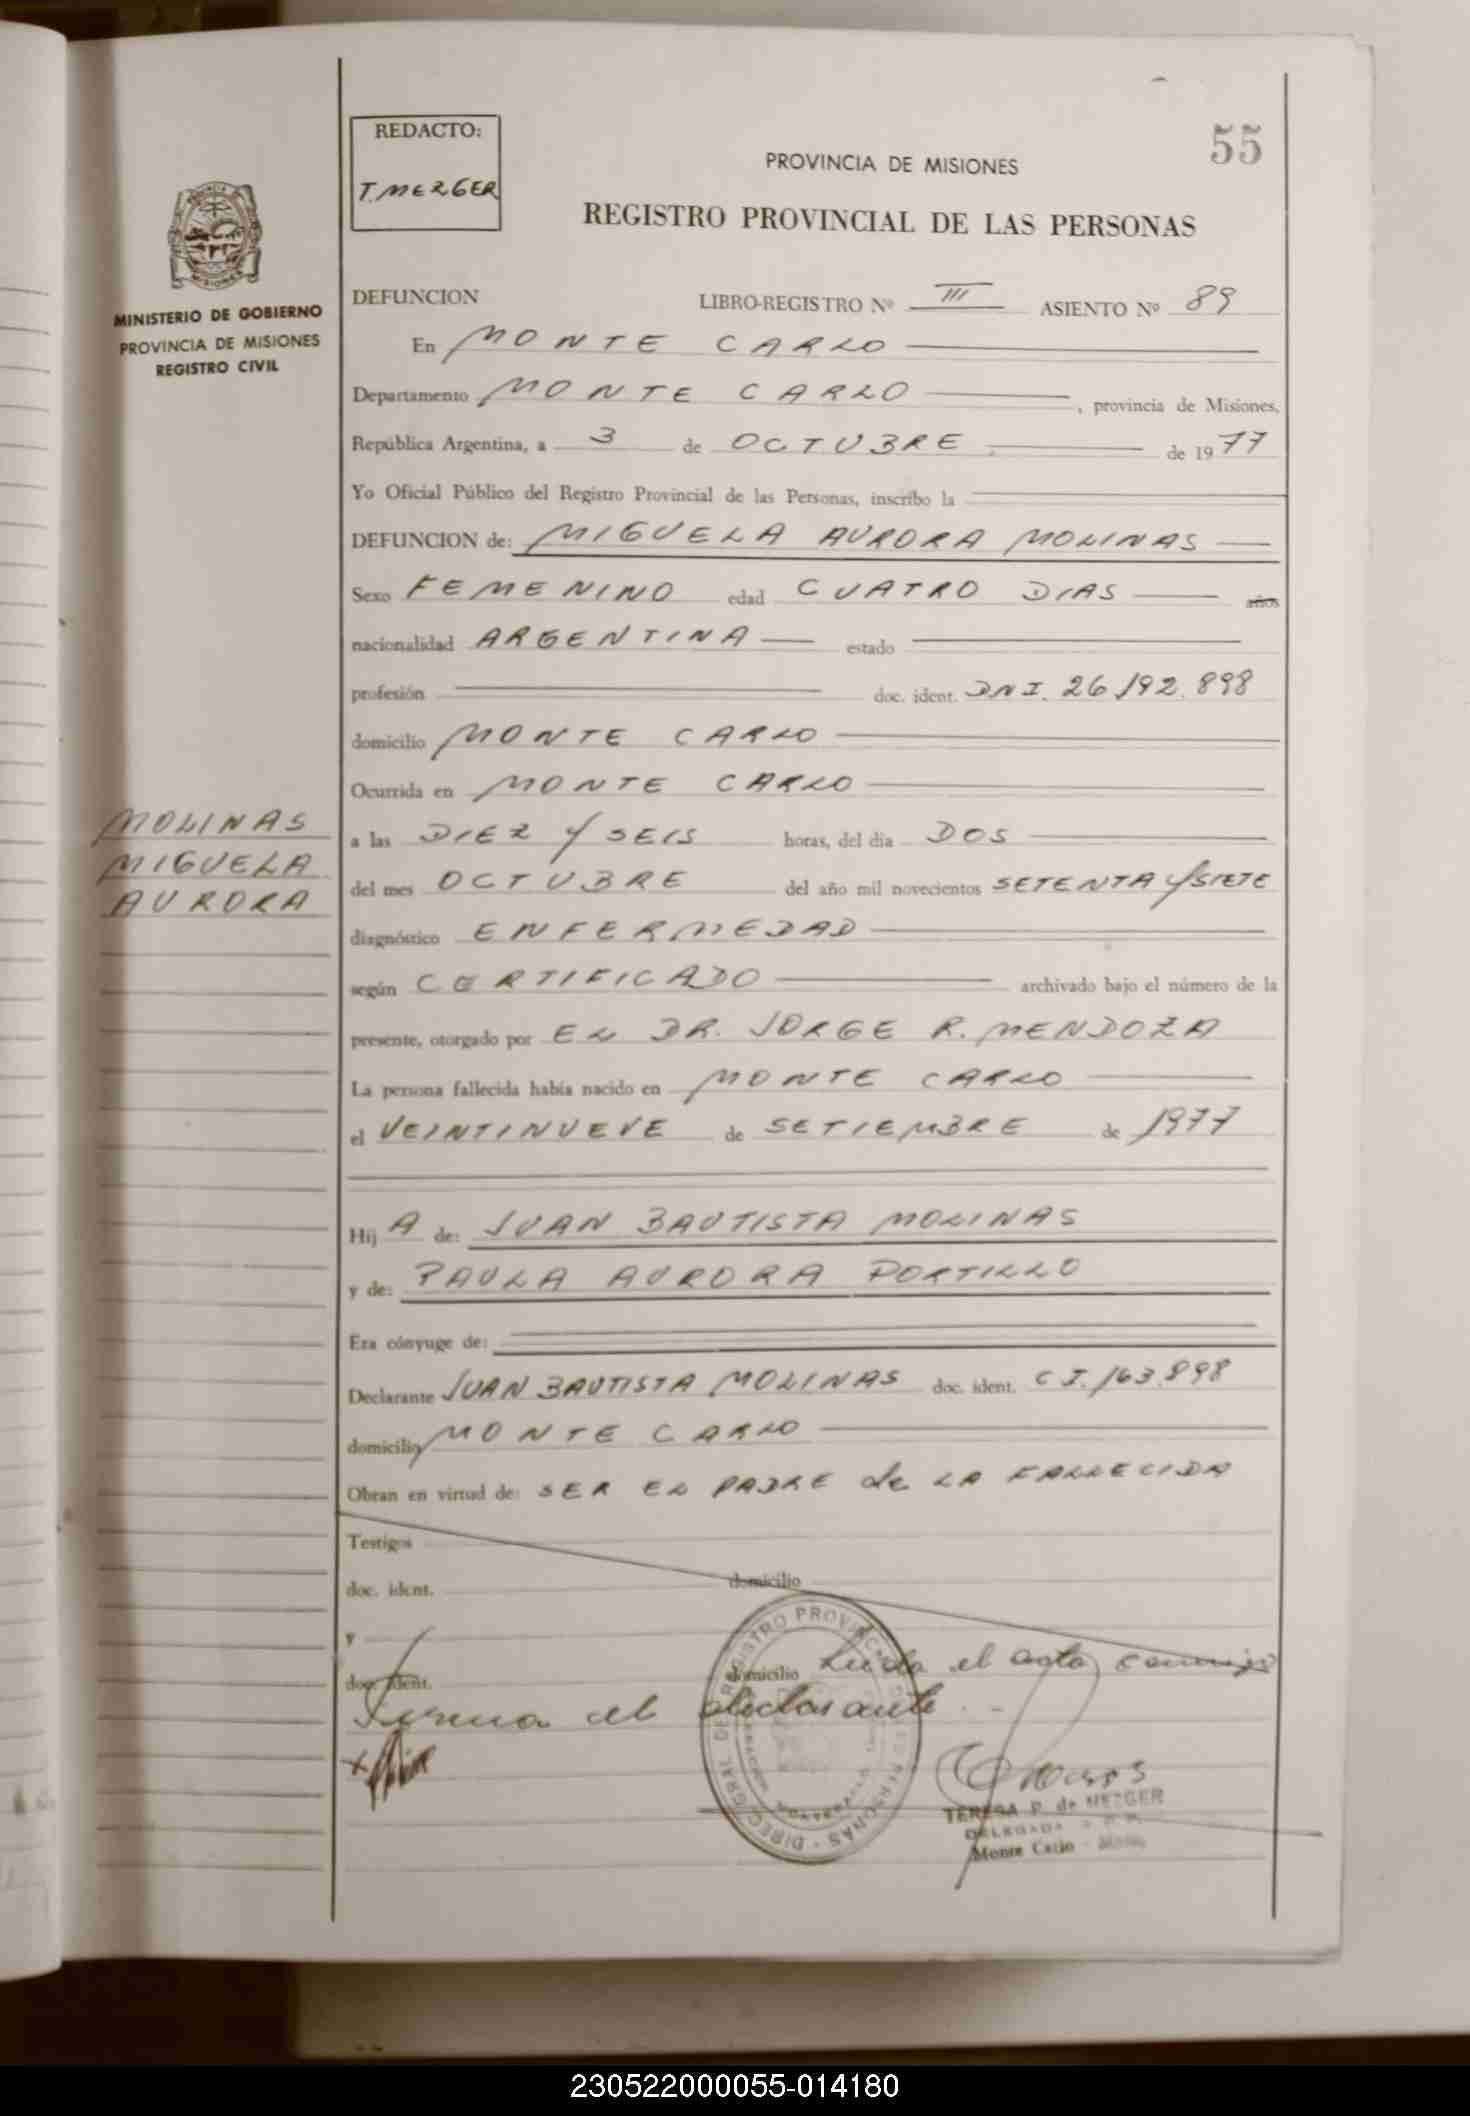 55
REDACTO:
T. MERGER
PROVINCIA DE MISIONES
REGISTRO PROVINCIAL DE LAS PERSONAS
MINISTERIO DE GOBIERNO
PROVINCIA DE MISIONES
REGISTRO CIVIL
DEFUNCION LIBRO-REGISTRO Nº III ASIENTO Nº 89
En MONTE CARLO
Departamento MONTE CARLO, provincia de Misiones,
República Argentina, a 3 de OCTUBRE de 1977
Yo Oficial Público del Registro Provincial de las Personas, inscribo la
DEFUNCION de: MIGUELA AURORA MOLINAS
Sexo FEMENINO edad CUATRO DIAS años
nacionalidad ARGENTINA estado
profesión doc. ident. DNI. 26192.898
domicilio MONTE CARLO
Ocurrida en MONTE CARLO
MOLINAS
MIGUELA
AURORA
a las DIEZ Y SEIS horas, del día DOS
del mes OCTUBRE del año mil novecientos SETENTA Y SIETE
diagnóstico ENFERMEDAD
según CERTIFICADO archivado bajo el número de la
presente, otorgado por EL DR. JORGE R. MENDOZA
La persona fallecida había nacido en MONTE CARLO
el VEINTINUEVE de SETIEMBRE de 1977
Hij A de: JUAN BAUTISTA MOLINAS
y de: PAULA AURORA PORTILLO
Era cónyuge de:
Declarante JUAN BAUTISTA MOLINAS doc. ident. C I. 163.898
domicilio MONTE CARLO
Obran en virtud de: SER EL PADRE de LA FALLECIDA
Testigos
doc. ident. domicilio
y
doc. ident. domicilio Leida el acta
Firma el declarante
DIREC. GRAL. DE REGISTRO PROVINCIAL DE LAS PERSONAS
TERESA P. de MERGER
DELEGADA
Monte Carlo
230522000055-014180